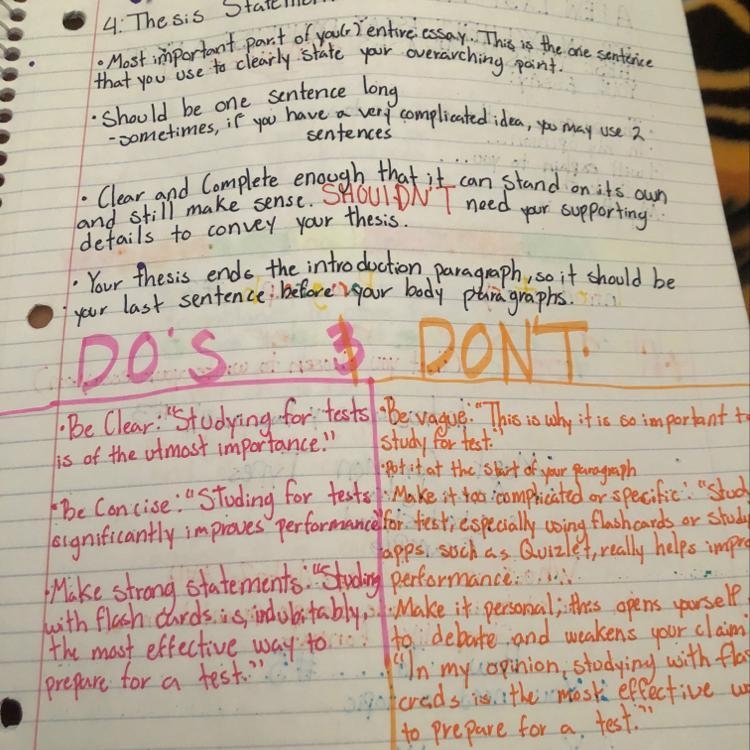 4. Thesis Statem
• Most important part of you(r) entire essay. This is the one sentence
that you use to clearly state your overarching point.
• Should be one sentence long
- sometimes, if you have a very complicated idea, you may use 2
sentences
• Clear and Complete enough that it can stand on its own
and still make sense. SHOULDN'T need your supporting
details to convey your thesis.
• Your thesis ends the introduction paragraph, so it should be
your last sentence before your body paragraphs.
DO'S
DON'T
• Be Clear: "Studying for tests
is of the utmost importance."
• Be Concise: "Studing for tests
significantly improves performance"
• Make strong statements: "Studing
with flash cards is, indubitably,
the most effective way to
prepare for a test."
• Be vague: "This is why it is so important to
study for test.
• Put it at the start of your paragraph
• Make it too complicated or specific: "Stud
for test, especially using flashcards or studi
apps such as Quizlet, really helps impro
performance.
• Make it personal; this opens yourself
to debate and weakens your claim
"In my opinion, studying with flas
crads is the most effective w
to prepare for a test."